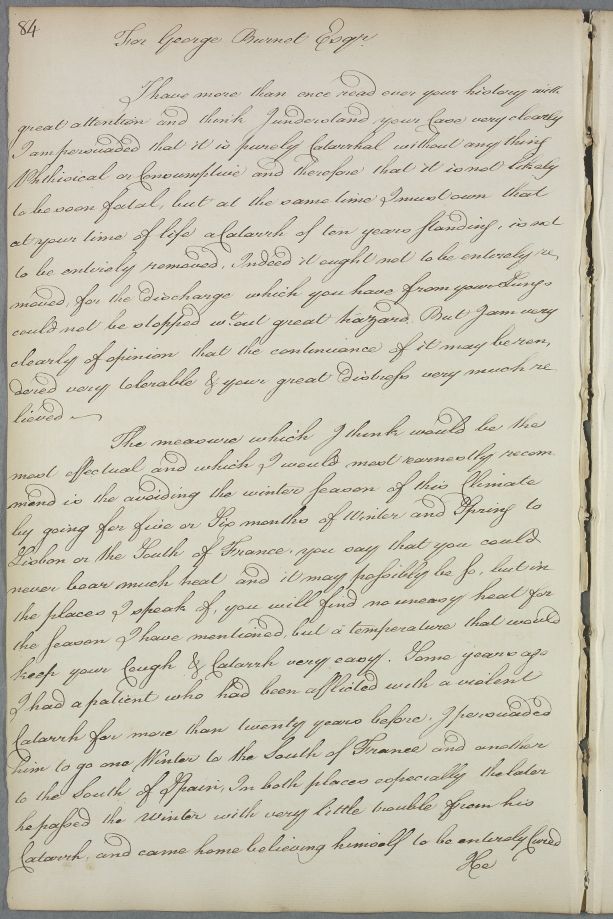 84
For George Burnet Esqr.
I have more than once read over your history with
great attention and think I understand your Case very clearly
I am persuaded that it is purely Catarrhal without any thing
Phthisical or Consumptive and therefore that it is not likely
to be soon fatal, but at the same time I must own that
at your time of life a Catarrh of ten years standing, is not
to be entirely removed. Indeed it ought not to be entirely re,
moved, for the Discharge which you have from your Lungs
could not be stopped wt.out great hazard. But I am very
clearly of opinion that the continuance of it may be ren,
dered very tolerable & your great Distress very much re
lieved —
The measure which I think would be the
most effectual and which I would most earnestly recom
mend is the avoiding the winter season of this Climate
by going for five or Six months of Winter and Spring to
Lisbon or the South of France. you say that you could
never bear much heat and it may possibly be so, but in
the places I speak of, you will find no uneasy heat for
the season I have mentioned, but a temperature that would
keep your Cough & Catarrh very easy. Some years ago
I had a patient who had been afflicted with a violent
Catarrh for more than twenty years before. I persuaded
him to go one Winter to the South of France and another
to the South of Spain, In both places especially the later
he passed the Winter with very little trouble from his
Catarrh, and came home believing himself to be entirely Cured
He